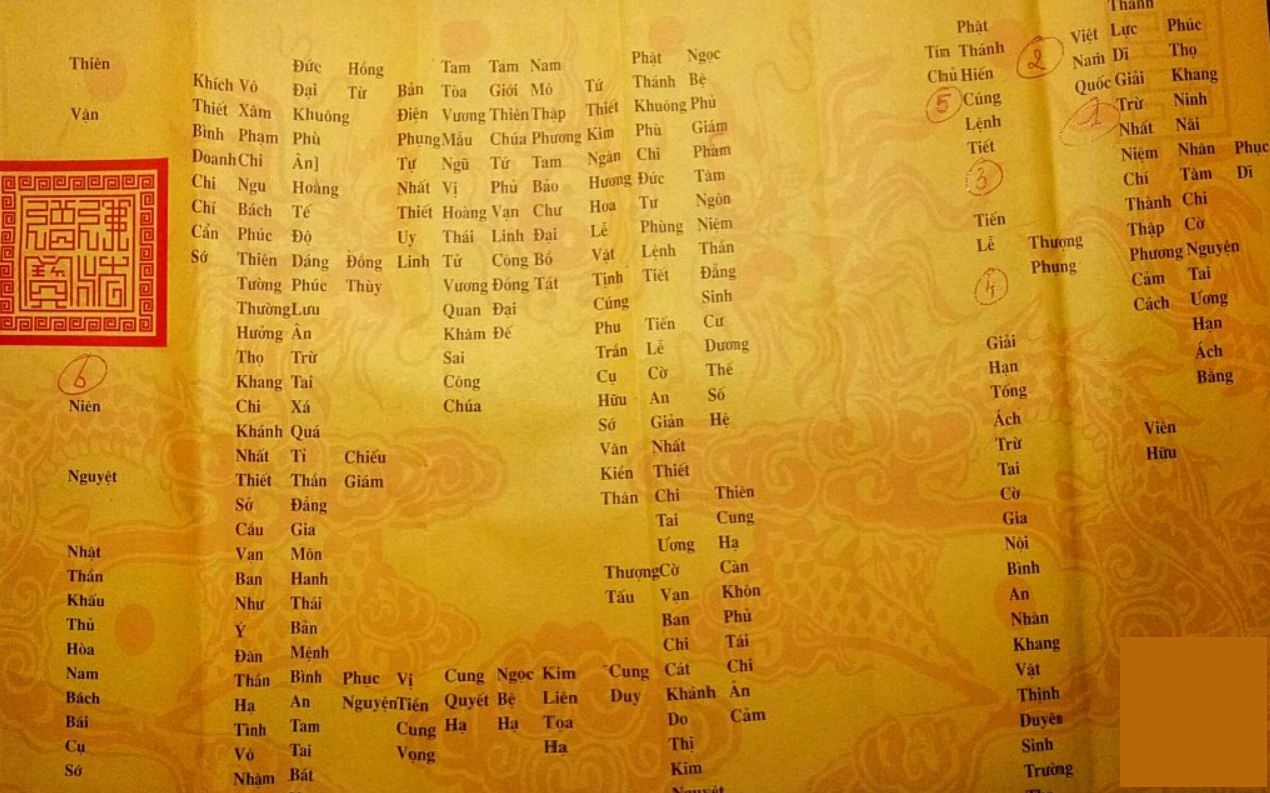 Phục Dĩ
Phúc Thọ Khang Ninh Nãi Nhân Tâm Chi Cờ Nguyện Tai Ương Hạn Ách Bằng
Thành Lực Dĩ Giải Trừ Nhất Niệm Chí Thành Thập Phương Cảm Cách Viên Hữu
Việt Nam Quốc 1
2
Thượng Phụng
Phật Thánh Hiến Cúng Lệnh Tiết 3 Tiến Lễ 4 Giải Hạn Tống Ách Trừ Tai Cờ Gia Nội Bình An Nhân Khang Vật Thịnh Duyên Sinh Trường
Tín Chủ 5
Ngọc Bệ Phủ Giám Phàm Tâm Ngôn Niệm Thần Đẳng Sinh Cư Dương Thế Số Hệ Thiên Cung Hạ Càn Khôn Phủ Tái Chi Ân Cảm
Phật Thánh Khuông Phù Chi Đức Tư Phùng Lệnh Tiết Tiến Lễ Cờ An Giản Nhất Thiết Chi Tai Ương Cờ Vạn Ban Chi Cát Khánh Do Thị Kim Nguyệt
Tứ Thiết Kim Ngân Hương Hoa Lễ Vật Tịnh Cúng Phu Trần Cụ Hữu Sớ Văn Kiền Thân Thượng Tấu Cung Duy
Nam Mô Thập Phương Tam Bảo Chư Đại Bồ Tát Kim Liên Tọa Hạ
Tam Giới Thiên Chúa Tứ Phủ Vạn Linh Công Đồng Đại Đế Ngọc Bệ Hạ
Tam Tòa Vương Mẫu Ngũ Vị Hoàng Thái Tử Vương Quan Khâm Sai Công Chúa Cung Quyết Hạ
Bản Điện Phụng Tự Nhất Thiết Uy Linh Vị Tiền Cung Vọng
Hồng Từ Đồng Thùy Chiếu Giám Phục Nguyện
Đức Đại Khuông Phù Ân] Hoằng Tế Độ Dáng Phúc Lưu Ân Trừ Tai Xá Quá Tỉ Thần Đẳng Gia Môn Hanh Thái Bản Mệnh Bình An Tam Tai Bát
Vô Xâm Phạm Chi Ngu Bách Phúc Thiên Tường Thường Hưởng Thọ Khang Chi Khánh Nhất Thiết Sở Cầu Vạn Ban Như Ý Đãn Thần Hạ Tình Vô Nhậm
Khích Thiết Bình Doanh Chi Chí Cẩn Sớ
Thiên Vận 6 Niên Nguyệt Nhật Thần Khấu Thủ Hòa Nam Bách Bái Cụ Sớ